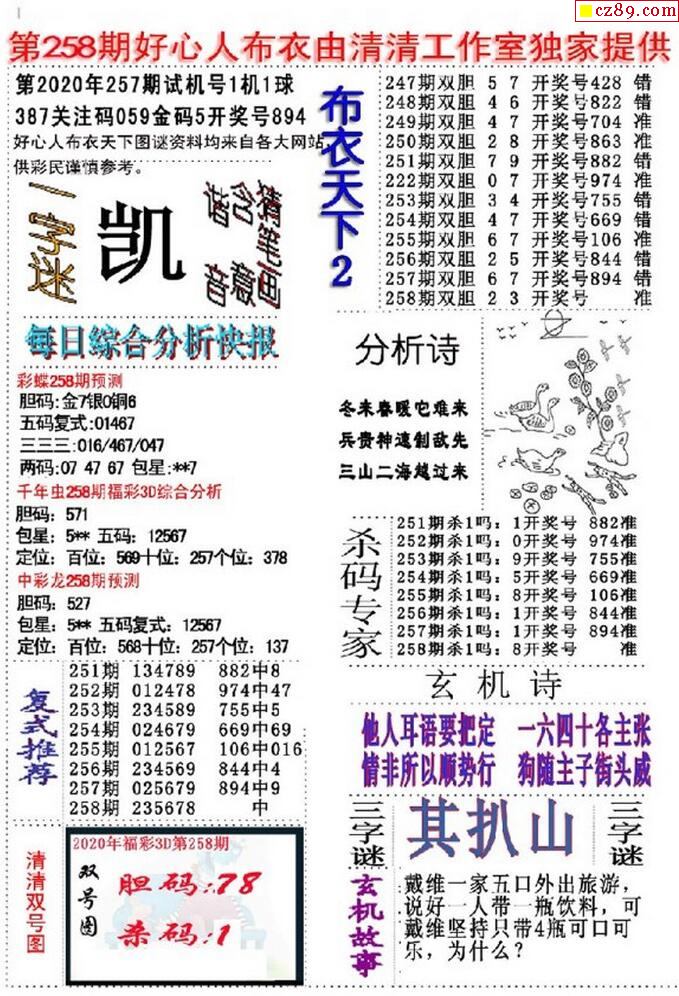 cz89.com
第258期好心人布衣由清清工作室独家提供
第2020年257期试机号1机1球
387关注码059金码5开奖号894
好心人布衣天下图谜资料均来自各大网站
供彩民谨慎参考。
一字谜
凯
谐音
含意
猜笔画
布衣天下2
247期双胆 5 7 开奖号428 错
248期双胆 4 6 开奖号822 错
249期双胆 4 7 开奖号704 准
250期双胆 2 8 开奖号863 准
251期双胆 7 9 开奖号882 错
222期双胆 0 7 开奖号974 准
253期双胆 3 4 开奖号755 错
254期双胆 4 7 开奖号669 错
255期双胆 6 7 开奖号106 准
256期双胆 2 5 开奖号844 错
257期双胆 6 7 开奖号894 错
258期双胆 2 3 开奖号 准
每日综合分析快报
彩蝶258期预测
胆码:金7银0铜6
五码复式:01467
三三三:016/467/047
两码:07 47 67 包星:**7
千年虫258期福彩3D综合分析
胆码：571
包星：5** 五码：12567
定位：百位：569十位：257个位：378
中彩龙258期预测
胆码：527
包星：5** 五码复式：12567
定位：百位：568十位：257个位：137
分析诗
冬未春暖它难来
兵贵神速制敌先
三山二海越过来
杀码专家
251期杀1吗：1开奖号 882准
252期杀1吗：0开奖号 974准
253期杀1吗：9开奖号 755准
254期杀1吗：5开奖号 669准
255期杀1吗：8开奖号 106准
256期杀1吗：1开奖号 844准
257期杀1吗：1开奖号 894准
258期杀1吗：8开奖号 准
复式推荐
251期 134789 882中8
252期 012478 974中47
253期 234589 755中5
254期 024679 669中69
255期 012567 106中016
256期 234569 844中4
257期 025679 894中9
258期 235678 中
玄机诗
他人耳语要把定 一六四十各主张
情非所以顺势行 狗随主子街头威
三字谜
其扒山
三字谜
清清双号图
2020年福彩3D第258期
双号图
胆码:78
杀码:1
玄机故事
戴维一家五口外出旅游，
说好一人带一瓶饮料，可
戴维坚持只带4瓶可口可
乐，为什么？